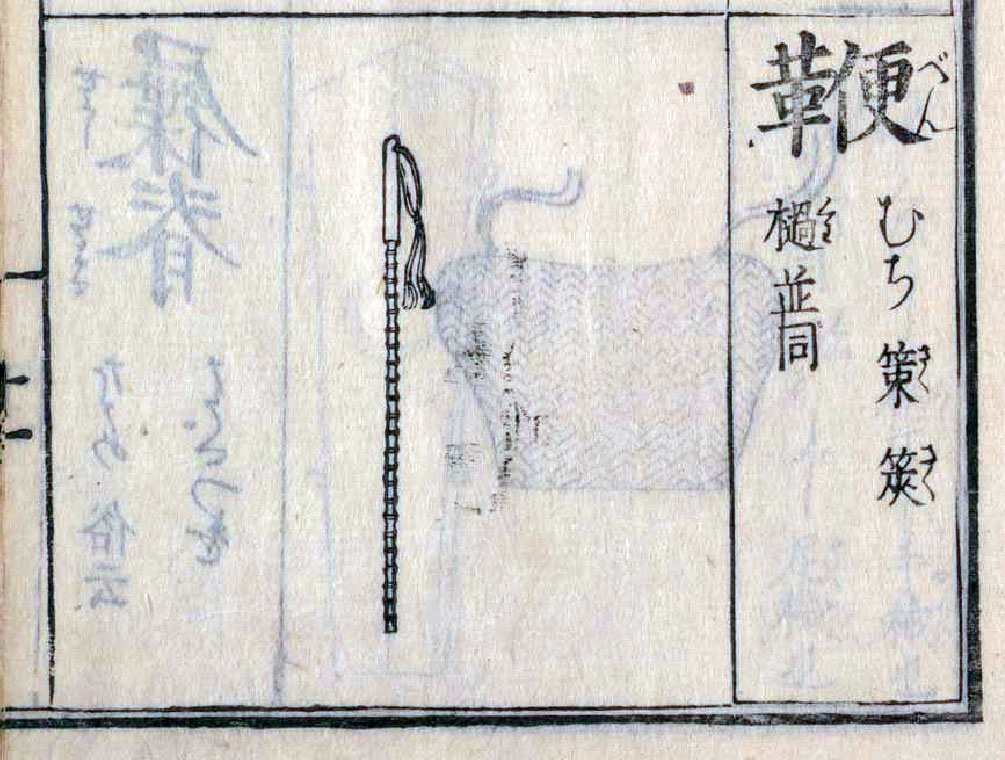 鞭 べん
むち 策 さく 筴 さく
檛 並同